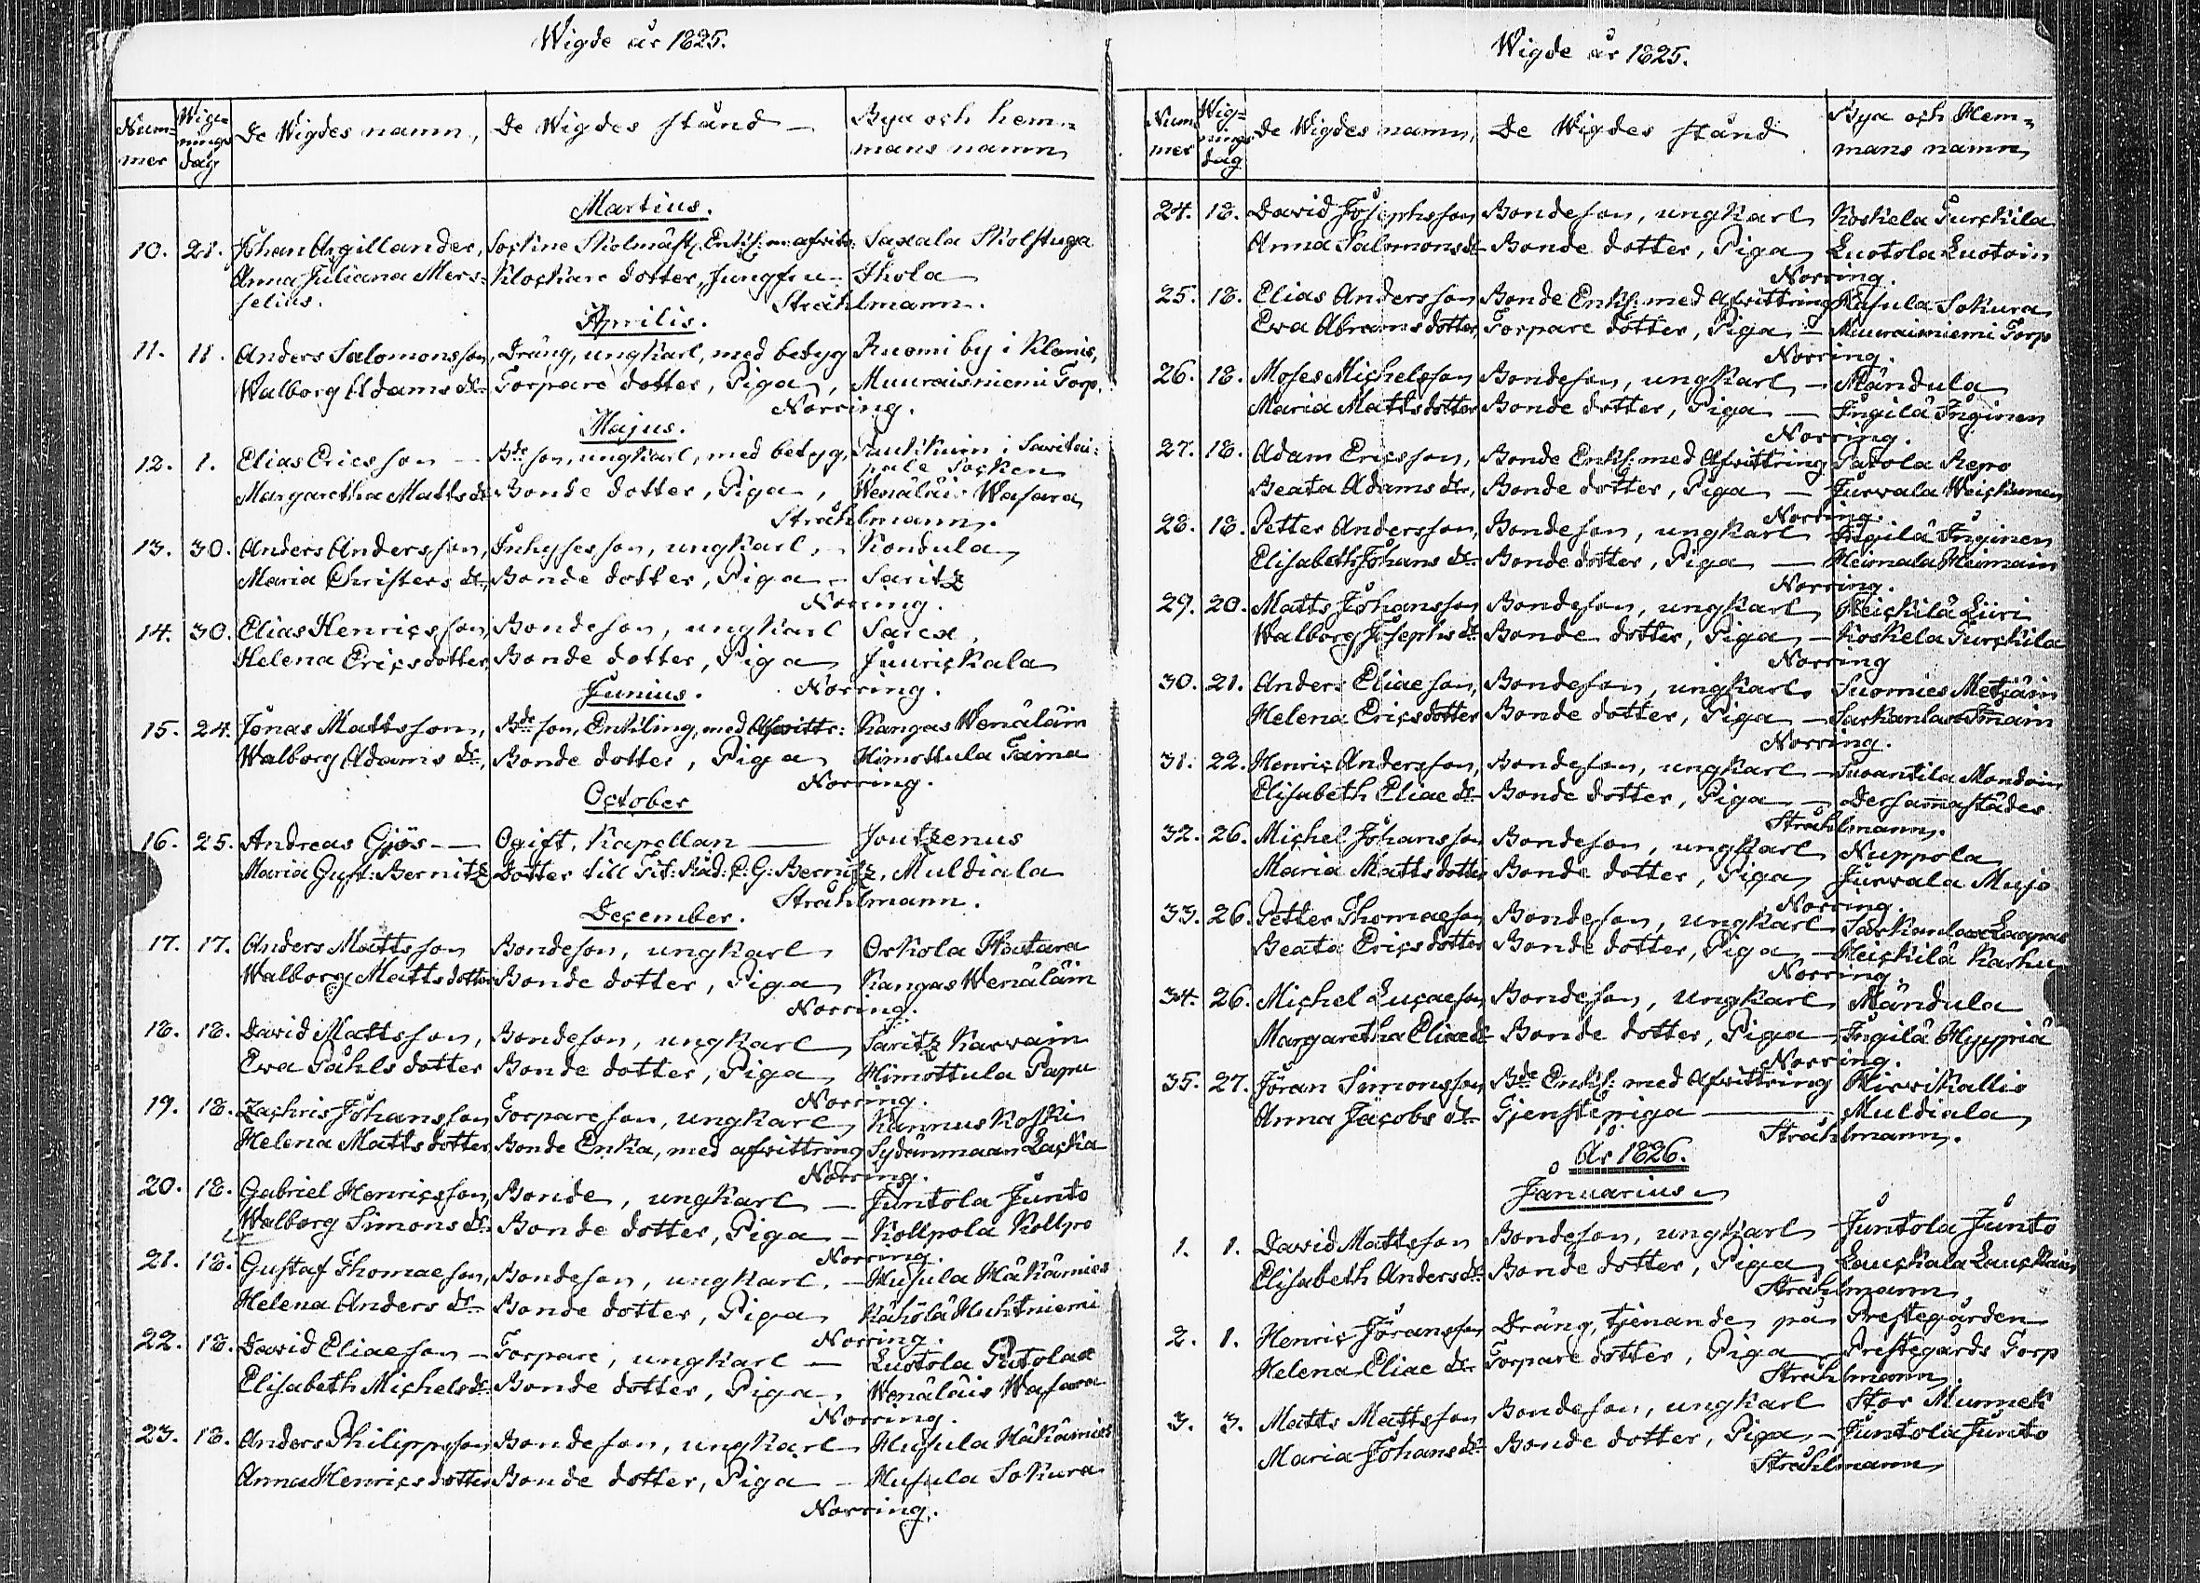 Wigde år 1825.
Num= mer Wig= nings dag De Wigdes namn, De Wigdes stånd — Bya och hem= mans namn
Martius.
10. 21. Johan Argillander, Sockne Skolmäst. Enkl: m: afvitr: Saxala Skolstuga
Anna Juliana Mers= Klockare dotter, Jungfru — Ihola
selius. Stråhlmann.
Aprilis.
11. 11. Anders Salomonsson, Dräng, ungkarl, med betyg Ruomi by i Klemis,
Walborg Adams dr Torpare dotter, Piga, Muuraisniemi Torp.
Norring.
Majus.
12. 1. Elias Ericsson — Bde son, ungkarl, med betyg, i Savitai=
pale Socken
Margaretha Matts dr Bonde dotter, Piga, Wenäläis Wasara
Stråhlmann.
13. 30. Anders Andersson, Inhyses son, ungkarl, — Kondula
Maria Christers dr, Bonde dotter, Piga — Saritz
Norring.
14. 30. Elias Henricsson, Bondeson, ungkarl Sarex,
Helena Ericsdotter, Bonde dotter, Piga Juurickala
Norring.
Junius.
15. 24. Jonas Mattsson, Bde son, Enkling, med Afvittr: Kangas Wenäläin
Walborg Adams dr, Bonde dotter, Piga Himottula Taina
Norring.
October
16. 25. Andreas Gjös — Ogift, Kapellan — Joutzenus
Maria Gust: Bernitz Dotter till Tit: Råd: C: G: Bernitz, Muldiala
Stråhlmann.
December.
17. 17. Anders Mattsson Bondeson, ungkarl Orkola Hatara
Walborg Mattsdotter Bonde dotter, Piga Kangas Wenäläin
Norring.
18. 18. David Mattsson, Bondeson, ungkarl Saritz Karvain
Eva Påhlsdotter Bonde dotter, Piga Himottula Papu
Norring.
19. 18. Zachris Johansson Torpare son, ungkarl Kannuskoski
Helena Mattsdotter Bonde Enka, med afvittring Sydänmaan Laska
Norring.
20. 18. Gabriel Henricsson, Bonde, ungkarl — Juntola Junto
Walborg Simons dr Bonde dotter, Piga — Kollpola Kollpo
Norring.
21. 18. Gustaf Thomaeson, Bondeson, ungkarl. — Husula Häkämies
Helena Anders dr Bonde dotter, Piga Kähölä Huhtniemi
Norring.
22. 18. David Eliaeson — Torpare, ungkarl — Luotola
Elisabeth Michelsdr Bonde dotter, Piga, Wenäläis Wasara
Norring.
23. 18. Anders Philippsson Bondeson, ungkarl Husula Häkämies
Anna Henricsdotter Bonde dotter, Piga — Husula Sokura
Norring.
Wigde år 1825.
Num mer Wig= nings dag De Wigdes namn, De Wigdes stånd Bya och Hem= mans namn
24. 18. David Josephsson Bondeson, ungkarl Koskela Turckila
Anna Salomonsdr Bonde dotter, Piga Luotola Luotoin
Norring.
25. 18. Elias Andersson Bonde Enkl: med Afvittring Husula Sokura
Eva Abramsdotter, Torpare dotter, Piga — Muuraisniemi Torp
Norring.
26. 18. Moses Michelsson Bondeson, ungkarl — Mändula
Maria Mattsdotter Bonde dotter, Piga — Ingilä Inginen
Norring.
27. 18. Adam Ericsson, Bonde Enkl: med Afvittring Parola Repo
Beata Adams dr, Bonde dotter, Piga — Jurvala Weickanen
Norring.
28. 18. Petter Andersson, Bondeson, ungkarl Ingilä Inginen
Elisabeth Johans dr Bonde dotter, Piga — Heimala Heimain
Norring.
29. 20. Matts Johansson Bondeson, ungkarl Heickilä Liiri
Walborg Josephs dr Bonde dotter, Piga — Koskela Turckila
Norring
30. 21. Anders Eliaeson, Bondeson, ungkarl Suomies Metsäin
Helena Ericsdotter Bonde dotter, Piga — Sarkanlax
Norring.
31. 22. Henric Andersson, Bondeson, ungkarl — Suoantila Mondoin
Elisabeth Eliae dr Bonde dotter, Piga — dersammastädes
Stråhlmann.
32. 26. Michel Johansson Bondeson, ungkarl Nuppola
Maria Mattsdotter Bonde dotter, Piga Jurvala Mujo
Norring.
33. 26. Petter Thomaeson Bondeson, ungkarl Sarkanlax Laapas
Beata Ericsdotter Bonde dotter, Piga — Heickilä Karhu
Norring.
34. 26. Michel Lucaeson Bondeson, ungkarl Mändula
Margaretha Eliaedr Bonde dotter, Piga — Ingilä Hyypiä
Norring.
35. 27. Jöran Simonsson, Bde Enkl: med Afvittring Hirvikallio
Anna Jacobs dr Tjenstepiga — Muldiala
Stråhlmann.
År 1826.
Januarius.
1. 1. David Mattsson Bondeson, ungkarl Juntola Junto
Elisabeth Andersdr Bonde dotter, Piga Lauckala Lauckain
Stråhlmann
2. 1. Henric Jöransson Dräng, tjenande på Prestegården
Helena Eliae dr Torpare dotter, Piga Prestegårds Torp
Stråhlmann.
3. 3. Matts Mattsson Bondeson, ungkarl Stor Murmek
Maria Johansdr Bonde dotter, Piga — Juntola Junto
Stråhlmann